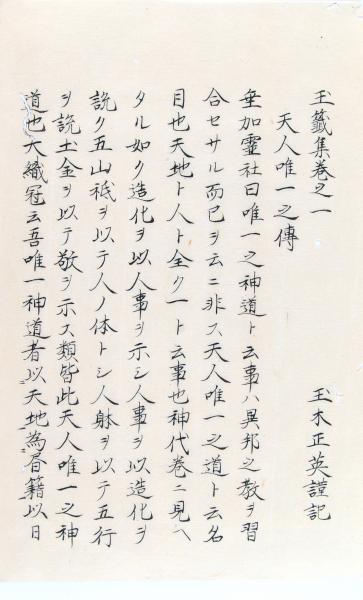 玉籤集巻之一
天人唯一之傳
玉木正英謹記
垂加靈社曰唯一之神道ト云事ハ異邦之教ヲ習
合セサル而已ヲ云ニ非ス天人唯一之道ト云名
目也天地ト人ト全ク一ト云事也神代巻ニ見ヘ
タル如ク造化ヲ以人事ヲ示シ人事ヲ以造化ヲ
説ク五山祇ヲ以テ人ノ体トシ人躰ヲ以テ五行
ヲ説土金ヲ以テ敬ヲ示ス類皆此天人唯一之神
道也大織冠云吾唯一神道者以天地為書籍以日